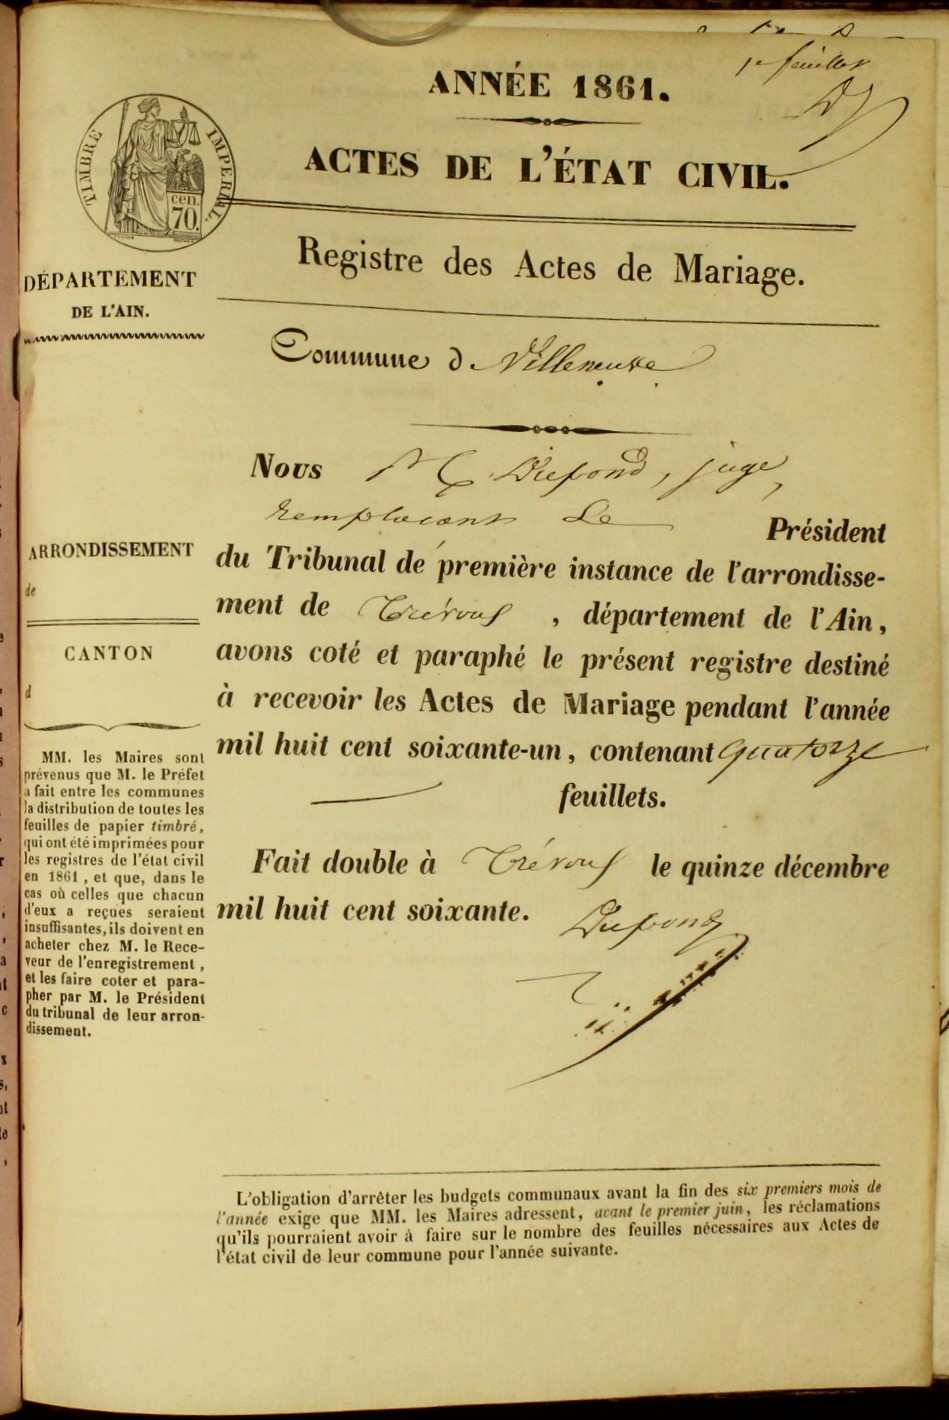 1er feuillet
ANNÉE 1861.
ACTES DE L'ÉTAT CIVIL.
TIMBRE IMPERIAL.
cen.
70.
Registre des Actes de Mariage.
DÉPARTEMENT
DE L'AIN.
Commune d Villeneuve
Nous Dupond, juge,
remplacant Le Président
du Tribunal de première instance de l'arrondisse-
ment de Trévoux, département de l'Ain,
avons coté et paraphé le présent registre destiné
à recevoir les Actes de Mariage pendant l'année
mil huit cent soixante-un, contenant quatorze
feuillets.
Fait double à Trévoux le quinze décembre
mil huit cent soixante.
Dupond
ARRONDISSEMENT
de
CANTON
d
MM. les Maires sont
prévenus que M. le Préfet
a fait entre les communes
la distribution de toutes les
feuilles de papier timbré,
qui ont été imprimées pour
les registres de l'état civil
en 1861, et que, dans le
cas où celles que chacun
d'eux a reçues seraient
insuffisantes, ils doivent en
acheter chez M. le Rece-
veur de l'enregistrement,
et les faire coter et para-
pher par M. le Président
du tribunal de leur arron-
dissement.
L'obligation d'arrêter les budgets communaux avant la fin des six premiers mois de
l'année exige que MM. les Maires adressent, avant le premier juin, les réclamations
qu'ils pourraient avoir à faire sur le nombre des feuilles nécessaires aux Actes de
l'état civil de leur commune pour l'année suivante.